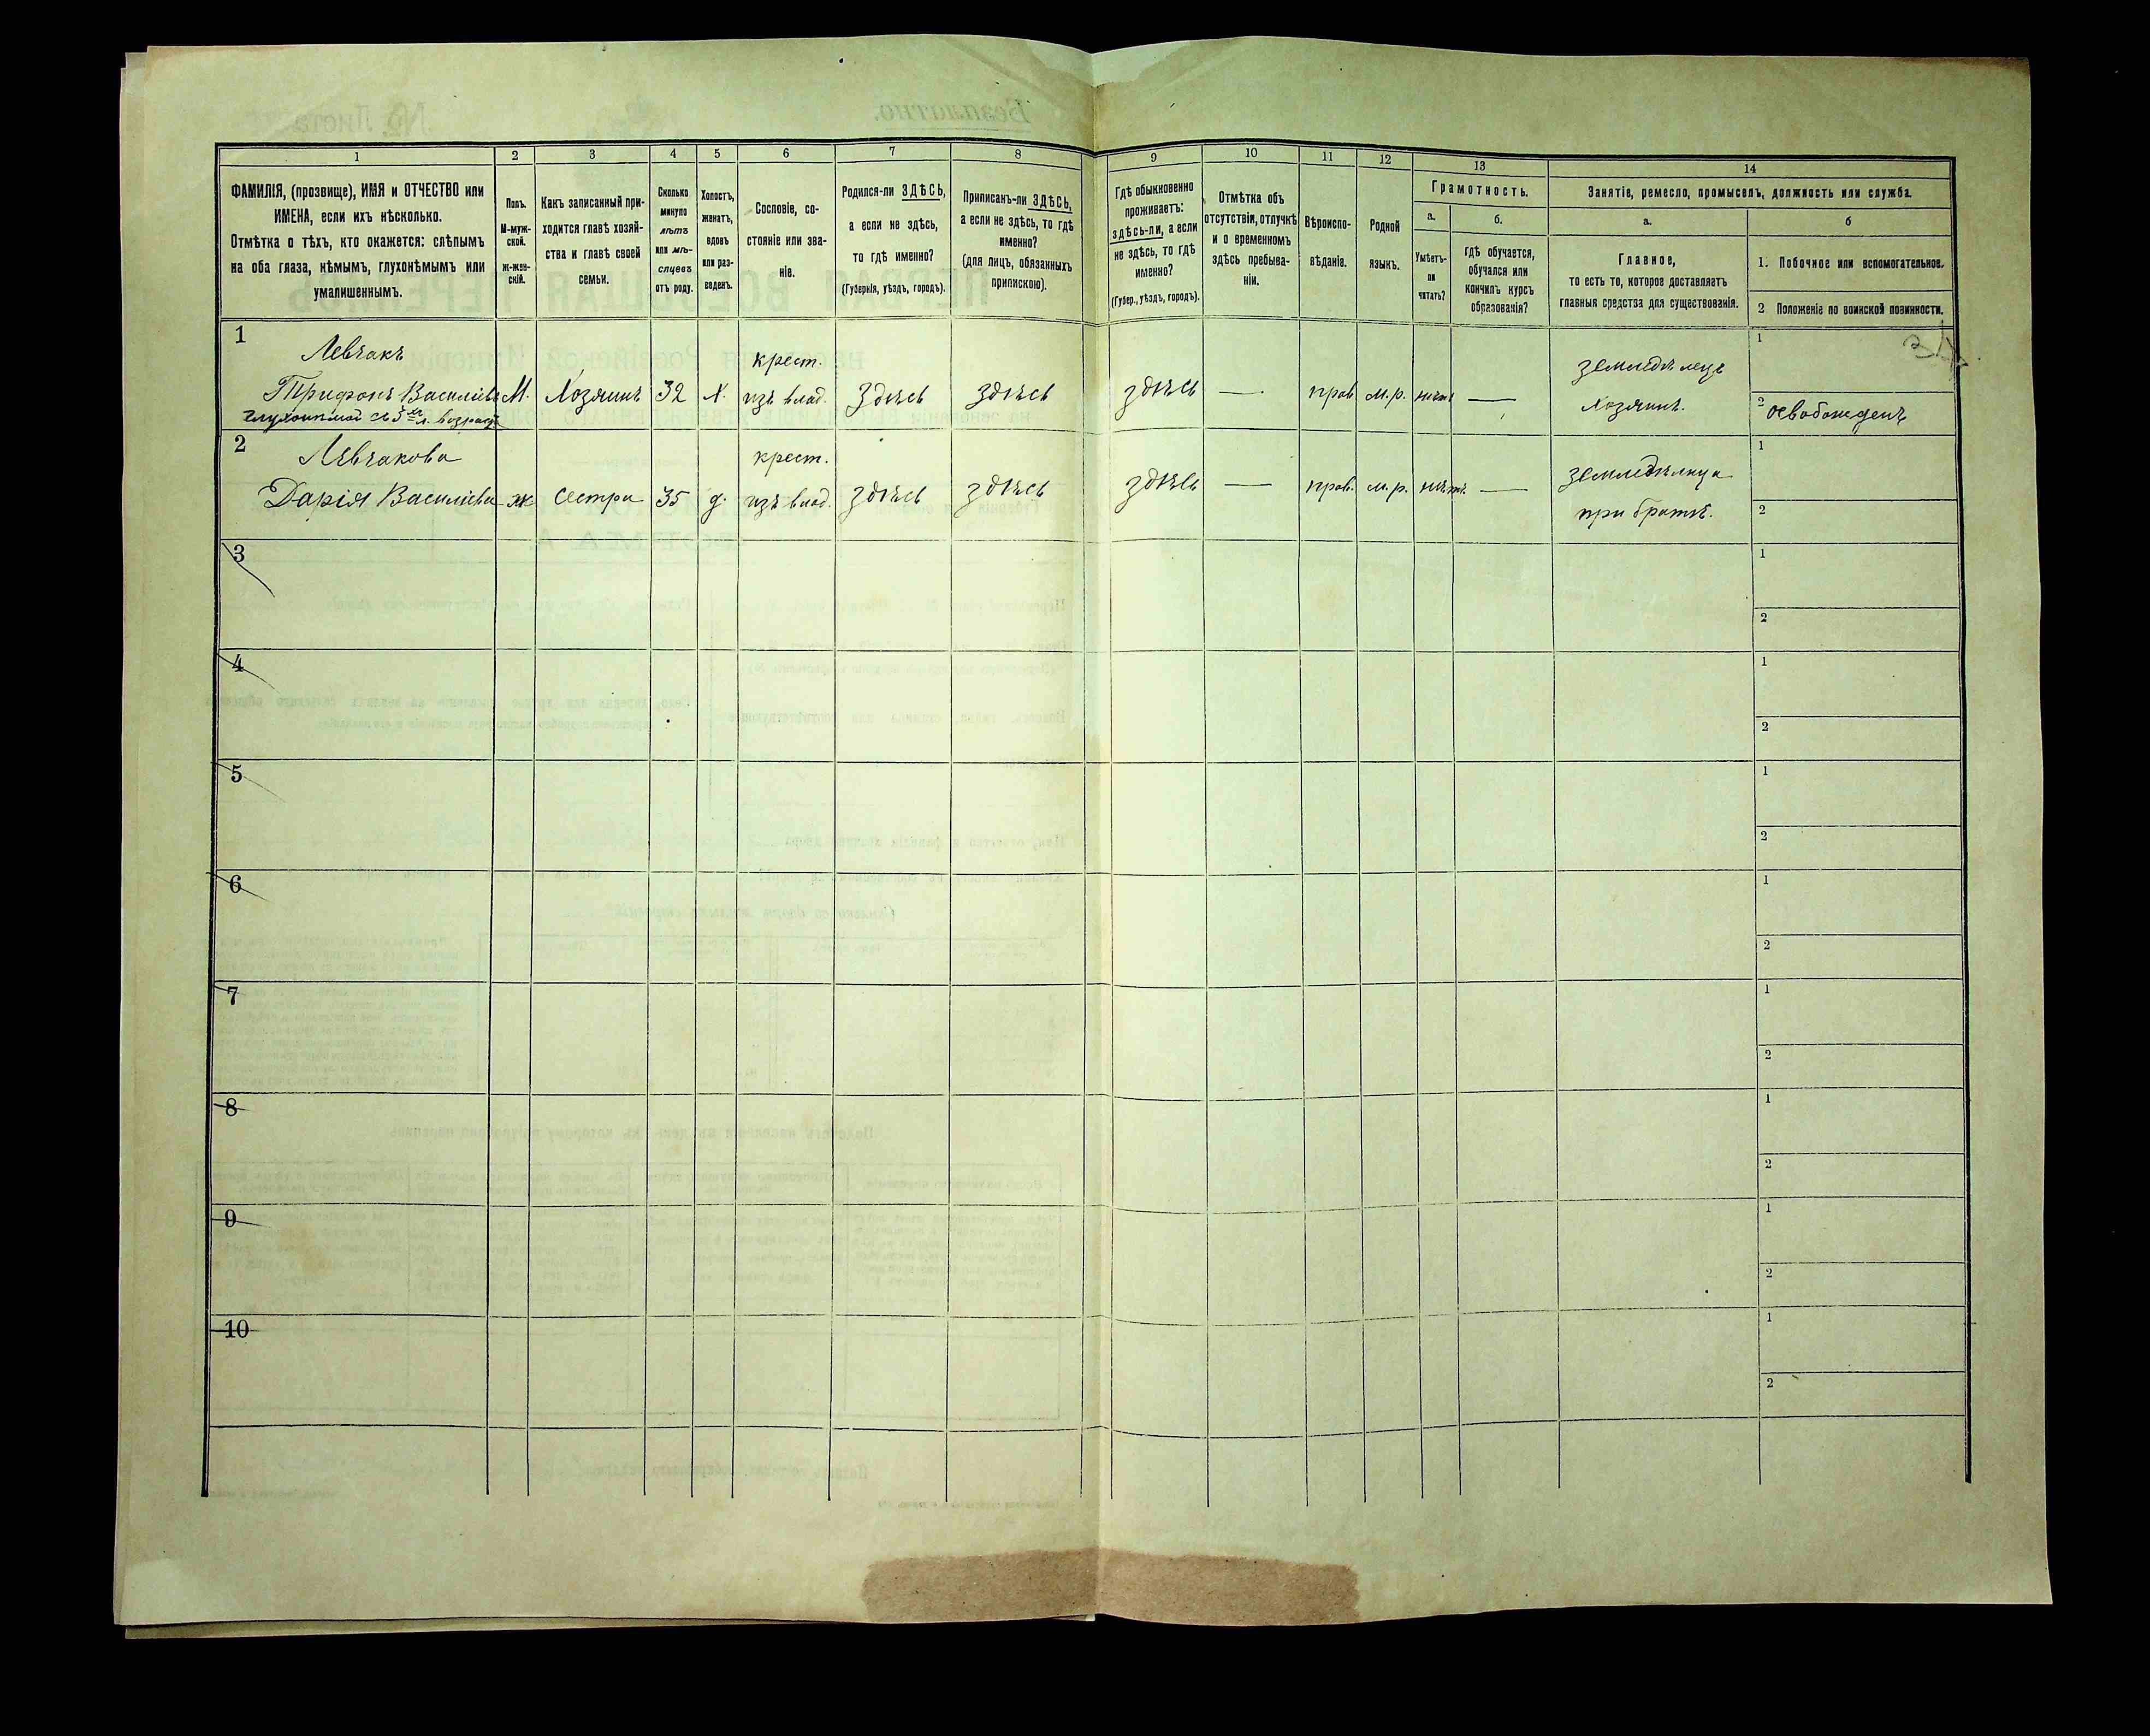 1
2
3
4
5
6
7
8
9
10
11
12
13
14
ФАМИЛІЯ, (прозвище), ИМЯ и ОТЧЕСТВО или
ИМЕНА, если ихъ нѣсколько.
Отмѣтка о тѣхъ, кто окажется: слѣпымъ
на оба глаза, нѣмымъ, глухонѣмымъ или
умалишеннымъ.
Полъ.
М-муж-
ской.
ж-жен-
скій.
Какъ записанный при-
ходится главѣ хозяй-
ства и главѣ своей
семьи.
Сколько
минуло
лѣтъ
или мѣ-
сяцевъ
отъ роду.
Холостъ,
женатъ,
вдовъ
или раз-
веденъ.
Сословіе, со-
стояніе или зва-
ніе.
Родился-ли ЗДѢСЬ,
а если не здѣсь,
то гдѣ именно?
(Губернія, уѣздъ, городъ).
Приписанъ-ли ЗДѢСЬ,
а если не здѣсь, то гдѣ
именно?
(для лицъ, обязанныхъ
припискою).
Гдѣ обыкновенно
проживаетъ:
здѣсь-ли, а если
не здѣсь, то гдѣ
именно?
(Губер., уѣздъ, городъ).
Отмѣтка объ
отсутствіи, отлучкѣ
и о временномъ
здѣсь пребыва-
ніи.
Вѣроиспо-
вѣданіе.
Родной
языкъ.
Грамотность.
а.
Умѣетъ-
ли
читать?
б.
гдѣ обучается,
обучался или
кончилъ курсъ
образованія?
Занятіе, ремесло, промыселъ, должность или служба.
а.
Главное,
то есть то, которое доставляетъ
главныя средства для существованія.
б
1. Побочное или вспомогательное.
2 Положеніе по воинской повинности.
1
Левчакъ
Трифонъ Василіевъ
глухонѣмой съ 3хъ л. возраста
М.
Хозяинъ
32
х.
крест.
изъ влад.
Здѣсь
здѣсь
здѣсь
—
прав.
м.р.
нѣтъ
—
земледѣлецъ
хозяинъ.
1
2
освобожденъ
2
Левчакова
Дарія Василіева
ж
сестра
35
д.
крест.
изъ влад.
здѣсь
здѣсь
здѣсь
—
прав.
м.р.
нѣтъ
—
земледѣлица
при братѣ.
1
2
3
1
2
4
1
2
5
1
2
6
1
2
7
1
2
8
1
2
9
1
2
10
1
2